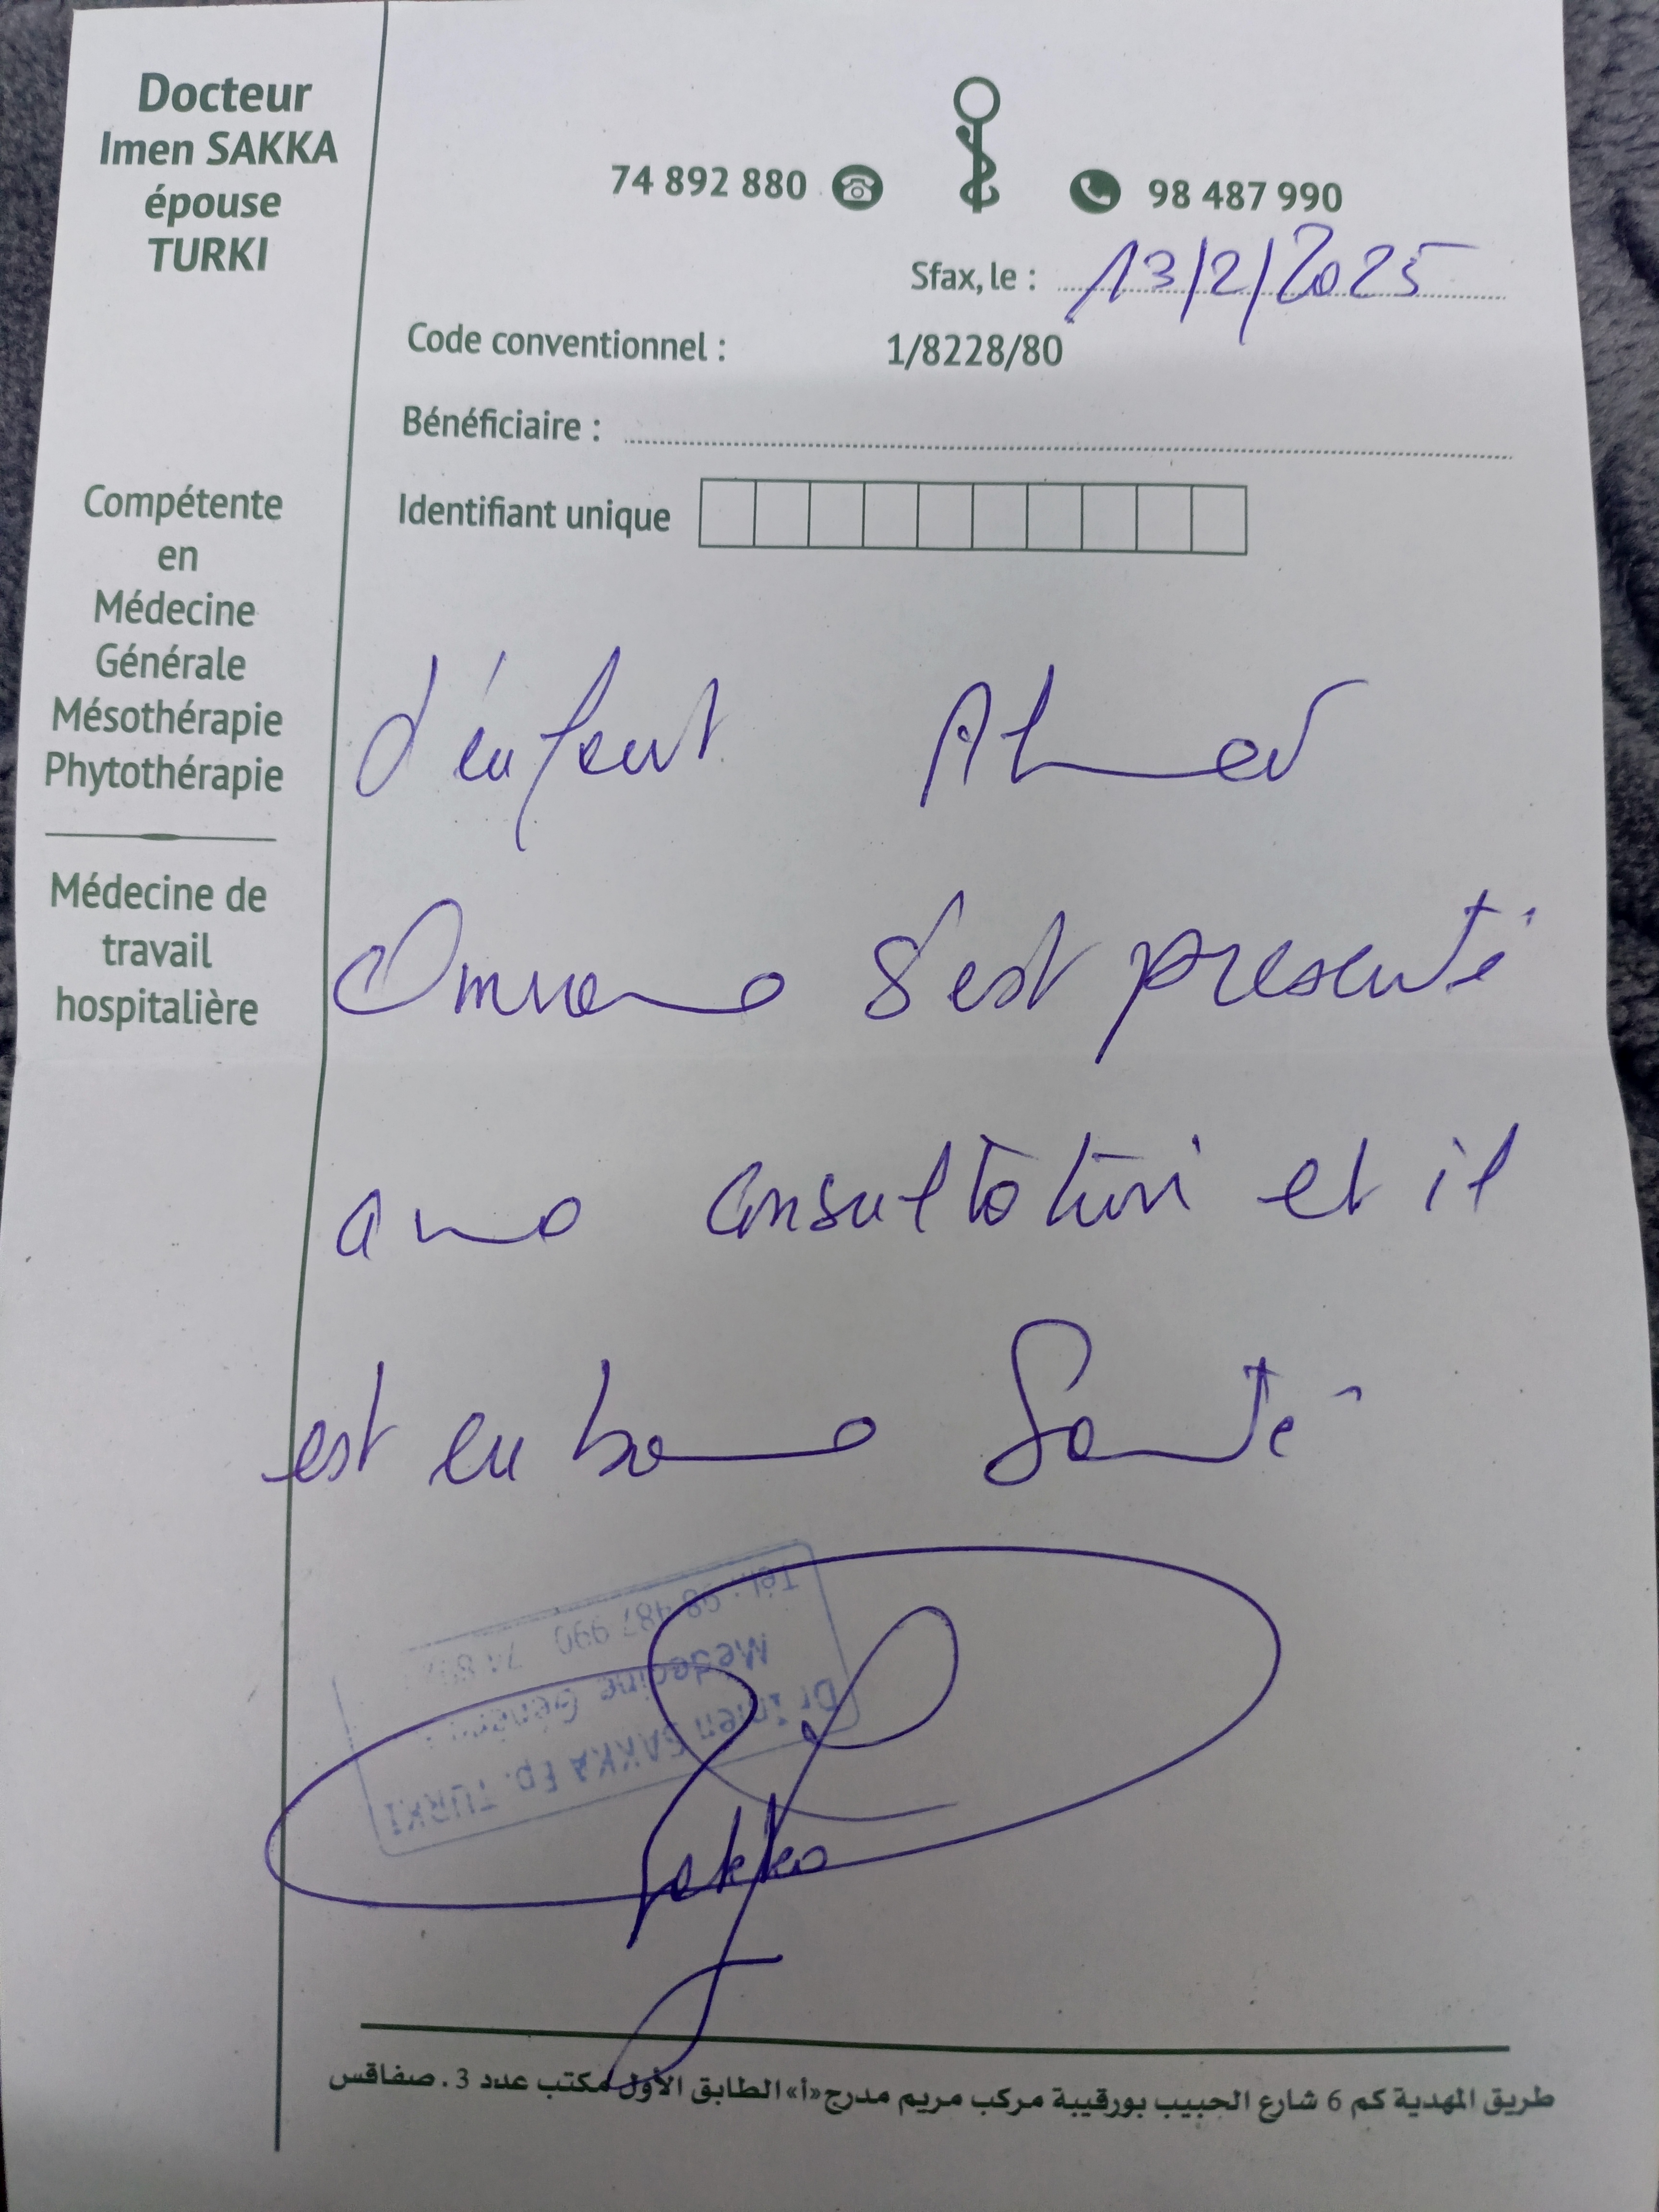 Docteur
Imen SAKKA
épouse
TURKI
74 892 880
98 487 990
Sfax, le : 13/2/2025
Code conventionnel : 1/8228/80
Bénéficiaire :
Identifiant unique
Compétente
en
Médecine
Générale
Mésothérapie
Phytothérapie
Médecine de
travail
hospitalière
l'enfant Ahmed
s'est presenté
a ma consultation et il
est en bonne Santé
Dr Imen SAKKA Ep. TURKI
Medecine
Tél.: 98 487 990
Sakka
طريق المهدية كم 6 شارع الحبيب بورقيبة مركب مريم مدرج «أ» الطابق الأول مكتب عدد 3 . صفاقس